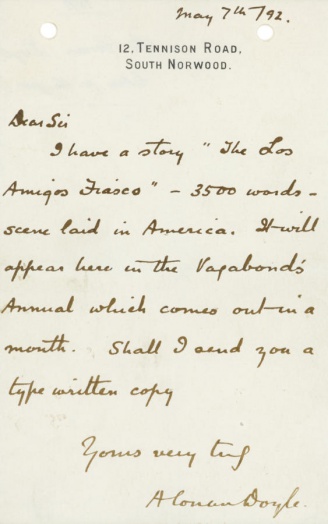 May 7th/92.
12, TENNISON ROAD,
SOUTH NORWOOD.
Dear Sir
I have a story "The Los
Amigos Fiasco" – 3500 words –
scene laid in America. It will
appear here in the Vagabond's
Annual which comes out in a
month. Shall I send you a
type written copy
Yours very truly
A Conan Doyle.